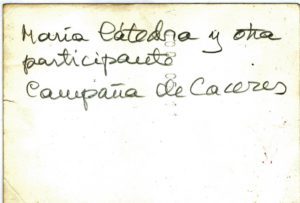 María Cátedra y otra
participante
Campaña de Caceres